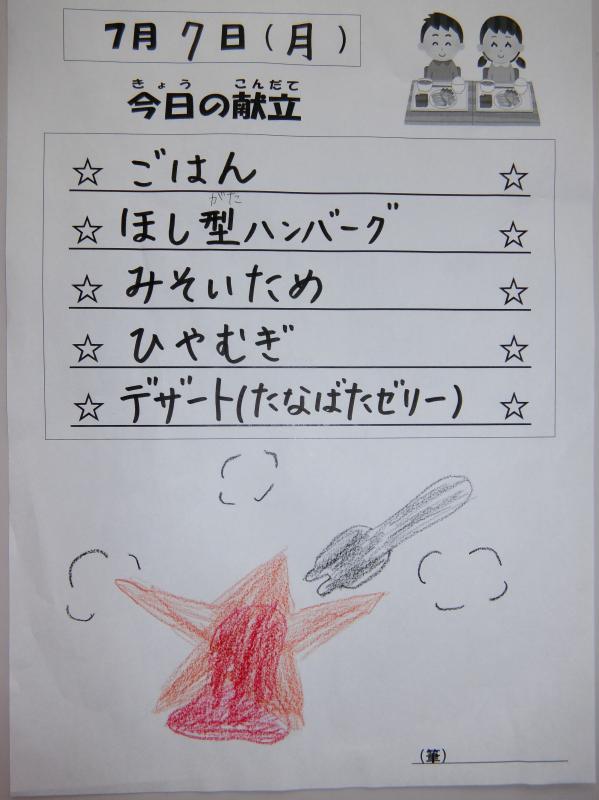 7月7日(月)
きょう こんだて
今日の献立
☆ ごはん ☆
がた
☆ ほし型ハンバーグ ☆
☆ みそいため ☆
☆ ひやむぎ ☆
☆ デザート(たなばたゼリー) ☆
(筆)